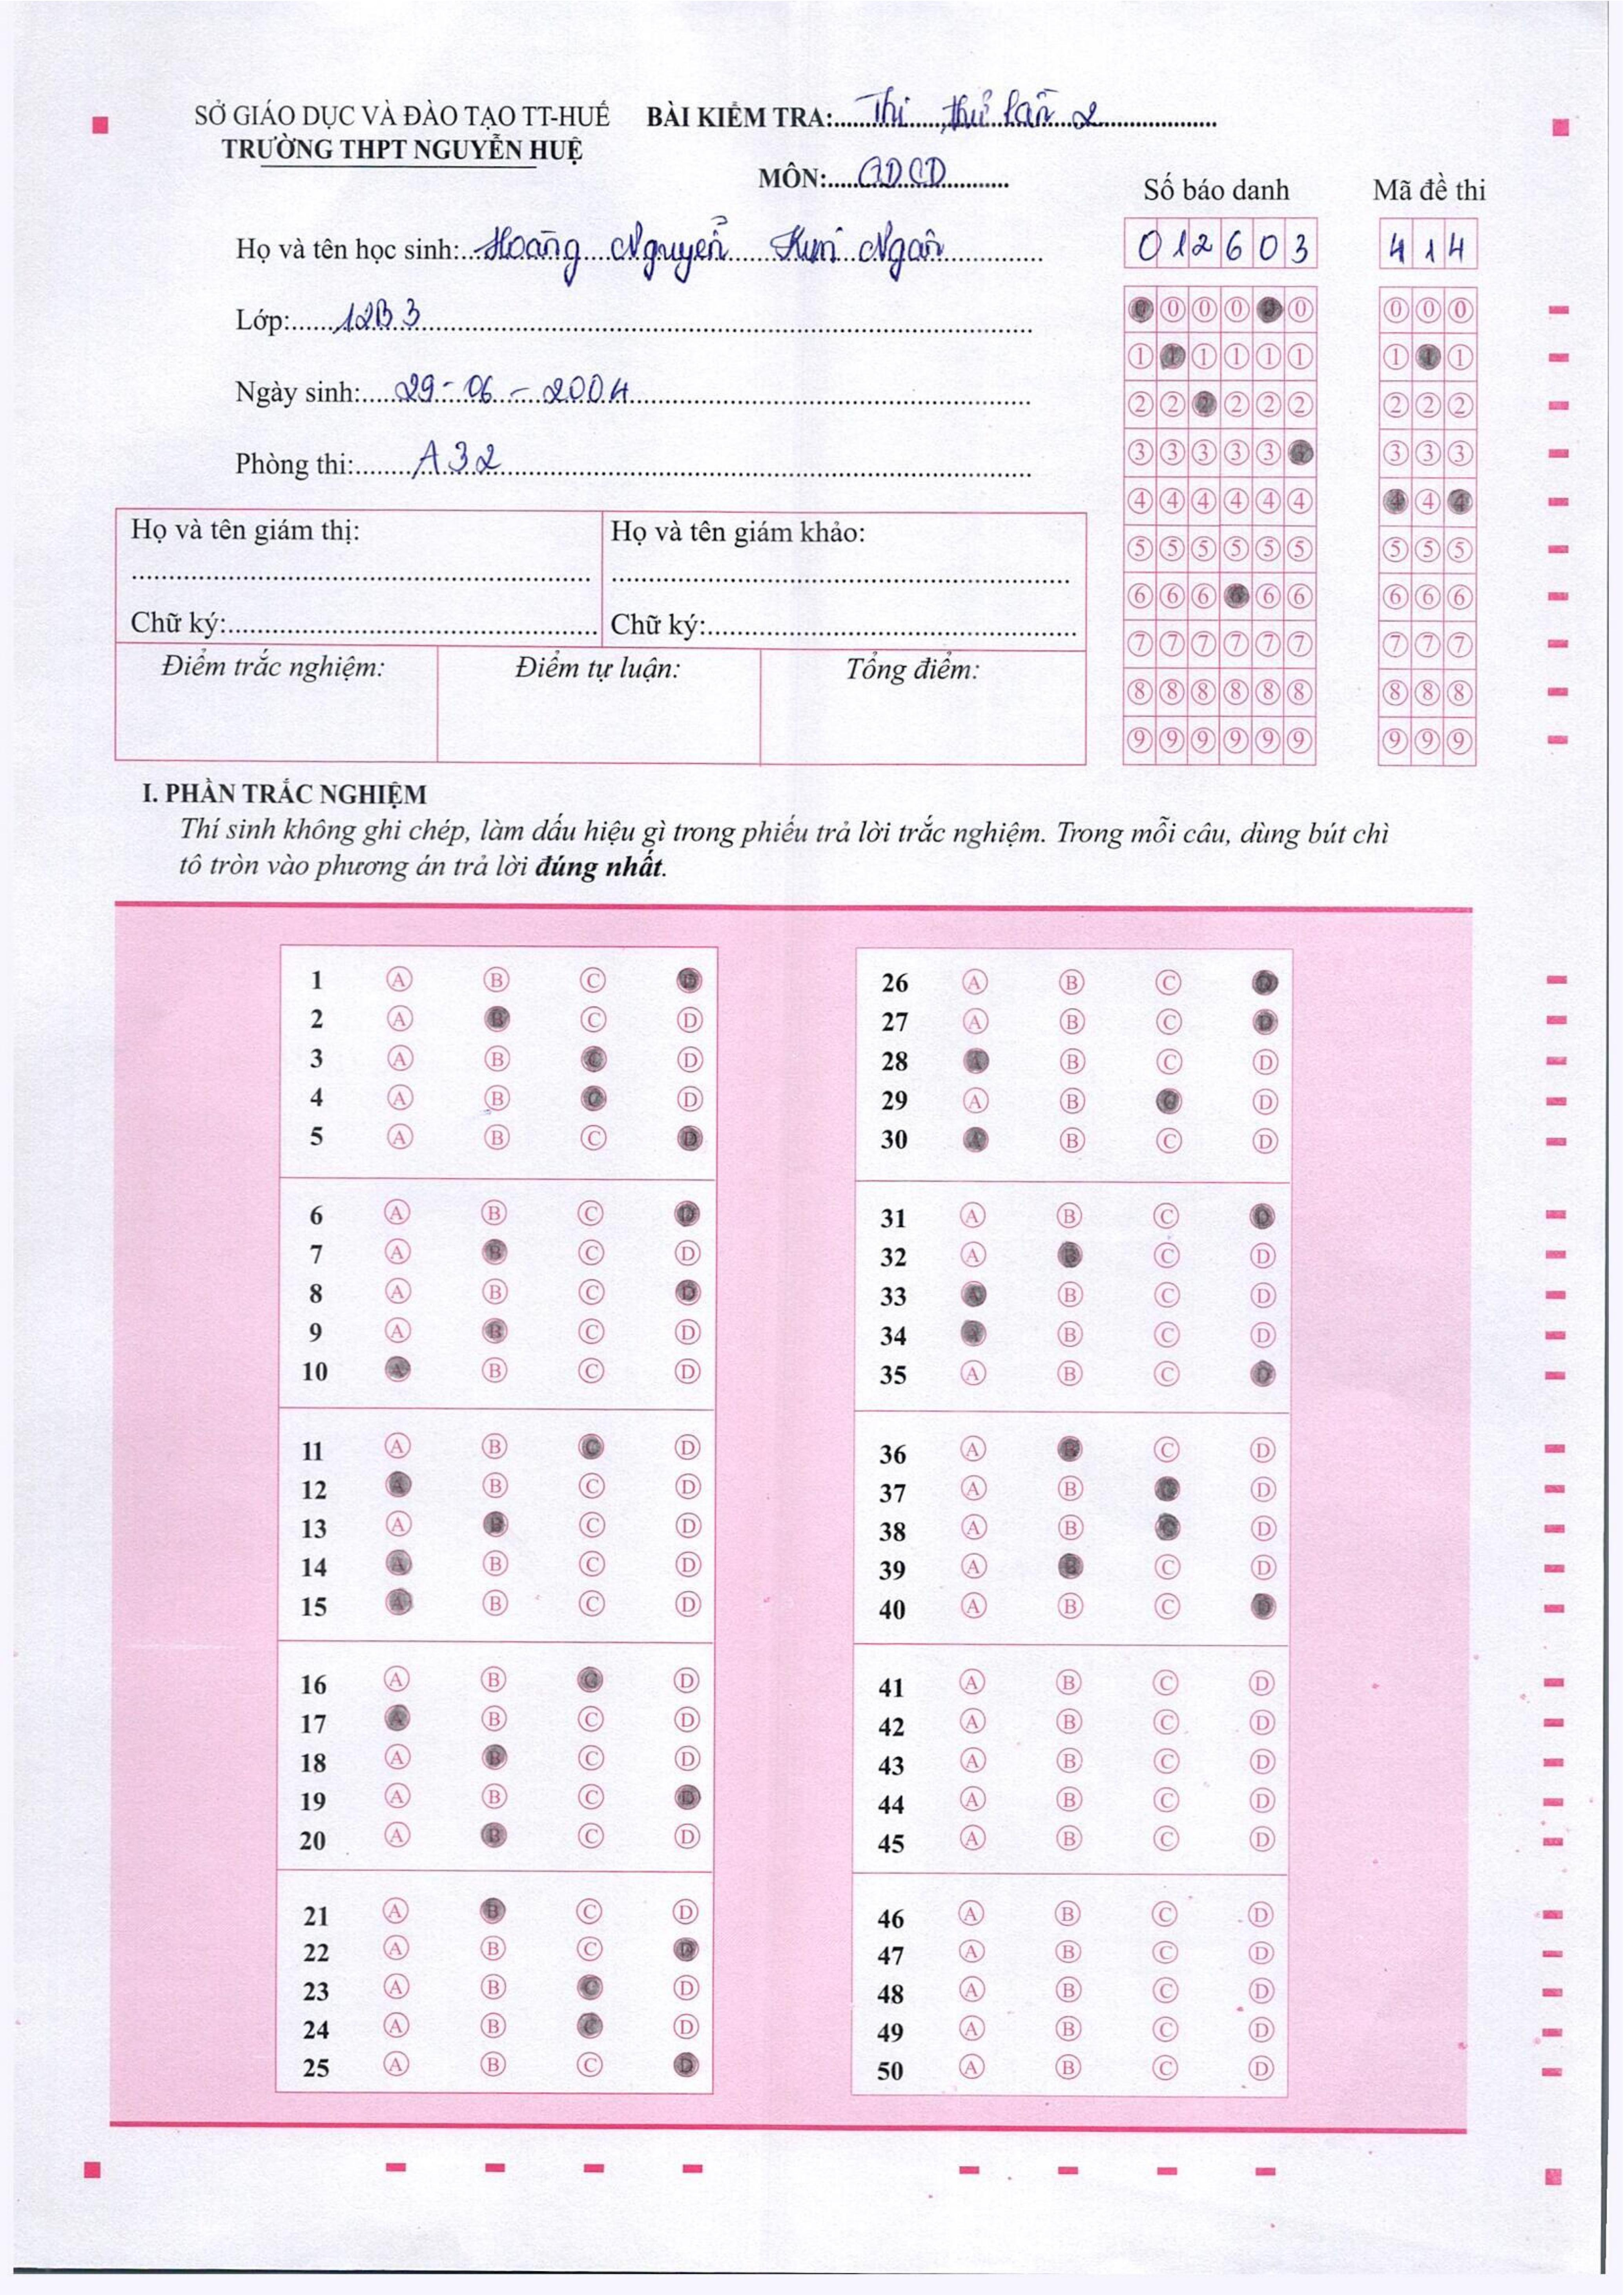 SỞ GIÁO DỤC VÀ ĐÀO TẠO TT-HUẾ
TRƯỜNG THPT NGUYỄN HUỆ
BÀI KIỂM TRA: Thi thử lần 2
MÔN: GDCD
Họ và tên học sinh: Hoàng Nguyễn Kim Ngân
Lớp: 12B3
Ngày sinh: 29-06-2004
Phòng thi: A32
Số báo danh
012603
0 0 0 0 0 0
1 1 1 1 1 1
2 2 2 2 2 2
3 3 3 3 3 3
4 4 4 4 4 4
5 5 5 5 5 5
6 6 6 6 6 6
7 7 7 7 7 7
8 8 8 8 8 8
9 9 9 9 9 9
Mã đề thi
414
0 0 0
1 1 1
2 2 2
3 3 3
4 4 4
5 5 5
6 6 6
7 7 7
8 8 8
9 9 9
Họ và tên giám thị:
Chữ ký:
Họ và tên giám khảo:
Chữ ký:
Điểm trắc nghiệm:
Điểm tự luận:
Tổng điểm:
I. PHẦN TRẮC NGHIỆM
Thí sinh không ghi chép, làm dấu hiệu gì trong phiếu trả lời trắc nghiệm. Trong mỗi câu, dùng bút chì
tô tròn vào phương án trả lời đúng nhất.
1 A B C D
2 A B C D
3 A B C D
4 A B C D
5 A B C D
6 A B C D
7 A B C D
8 A B C D
9 A B C D
10 A B C D
11 A B C D
12 A B C D
13 A B C D
14 A B C D
15 A B C D
16 A B C D
17 A B C D
18 A B C D
19 A B C D
20 A B C D
21 A B C D
22 A B C D
23 A B C D
24 A B C D
25 A B C D
26 A B C D
27 A B C D
28 A B C D
29 A B C D
30 A B C D
31 A B C D
32 A B C D
33 A B C D
34 A B C D
35 A B C D
36 A B C D
37 A B C D
38 A B C D
39 A B C D
40 A B C D
41 A B C D
42 A B C D
43 A B C D
44 A B C D
45 A B C D
46 A B C D
47 A B C D
48 A B C D
49 A B C D
50 A B C D